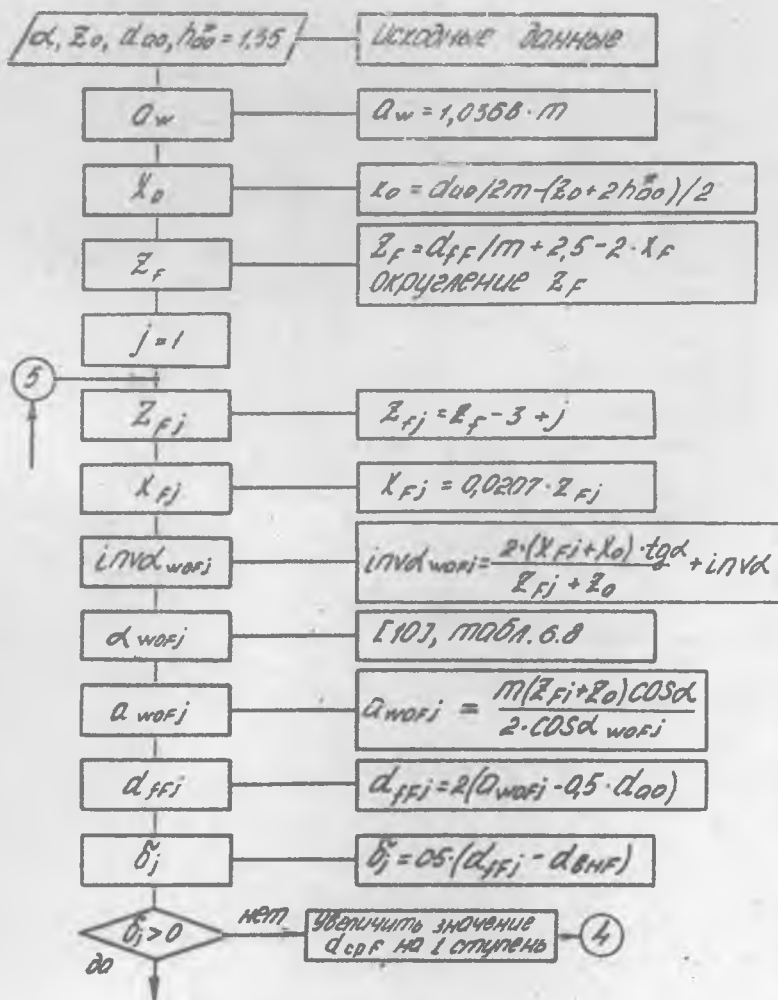 α, z₀, dₐ₀, h*ₐ₀ = 1,35
Исходные данные
a_w
a_w = 1,0368 · m
x₀
x₀ = dₐ₀/2m - (z₀ + 2h*ₐ₀)/2
z_F
z_F = d_fF/m + 2,5 - 2 · x_F
округление z_F
j = 1
5
z_Fj
z_Fj = z_F - 3 + j
x_Fj
x_Fj = 0,0207 · z_Fj
invα_w0Fj
invα_w0Fj = 2·(x_Fj + x₀)·tgα / (z_Fj + z₀) + invα
α_w0Fj
[10], табл. 6.8
a_w0Fj
a_w0Fj = m(z_Fj + z₀)cosα / (2·cosα_w0Fj)
d_fFj
d_fFj = 2(a_w0Fj - 0,5 · dₐ₀)
δ̃_j
δ̃_j = 05·(d_fFj - d_внF)
δ_j > 0
нет
увеличить значение
d_срF на 1 ступень
4
да